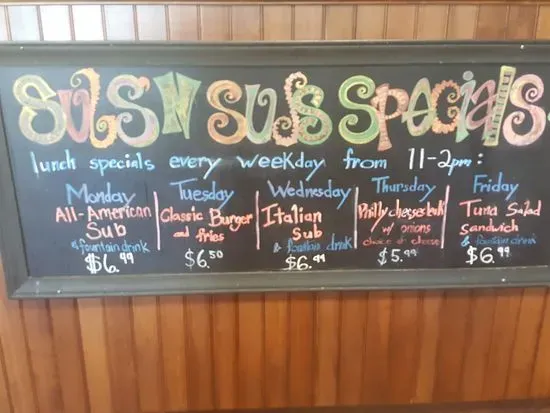 SUBS N SUBS SPECIALS
lunch specials every weekday from 11-2pm:
Monday
All-American
Sub
& fountain drink
$6.99
Tuesday
Classic Burger
and fries
$6.50
Wednesday
Italian
Sub
& fountain drink
$6.99
Thursday
Philly cheesesteak
w/ onions
choice of cheese
$5.99
Friday
Tuna Salad
Sandwich
& fountain drink
$6.99